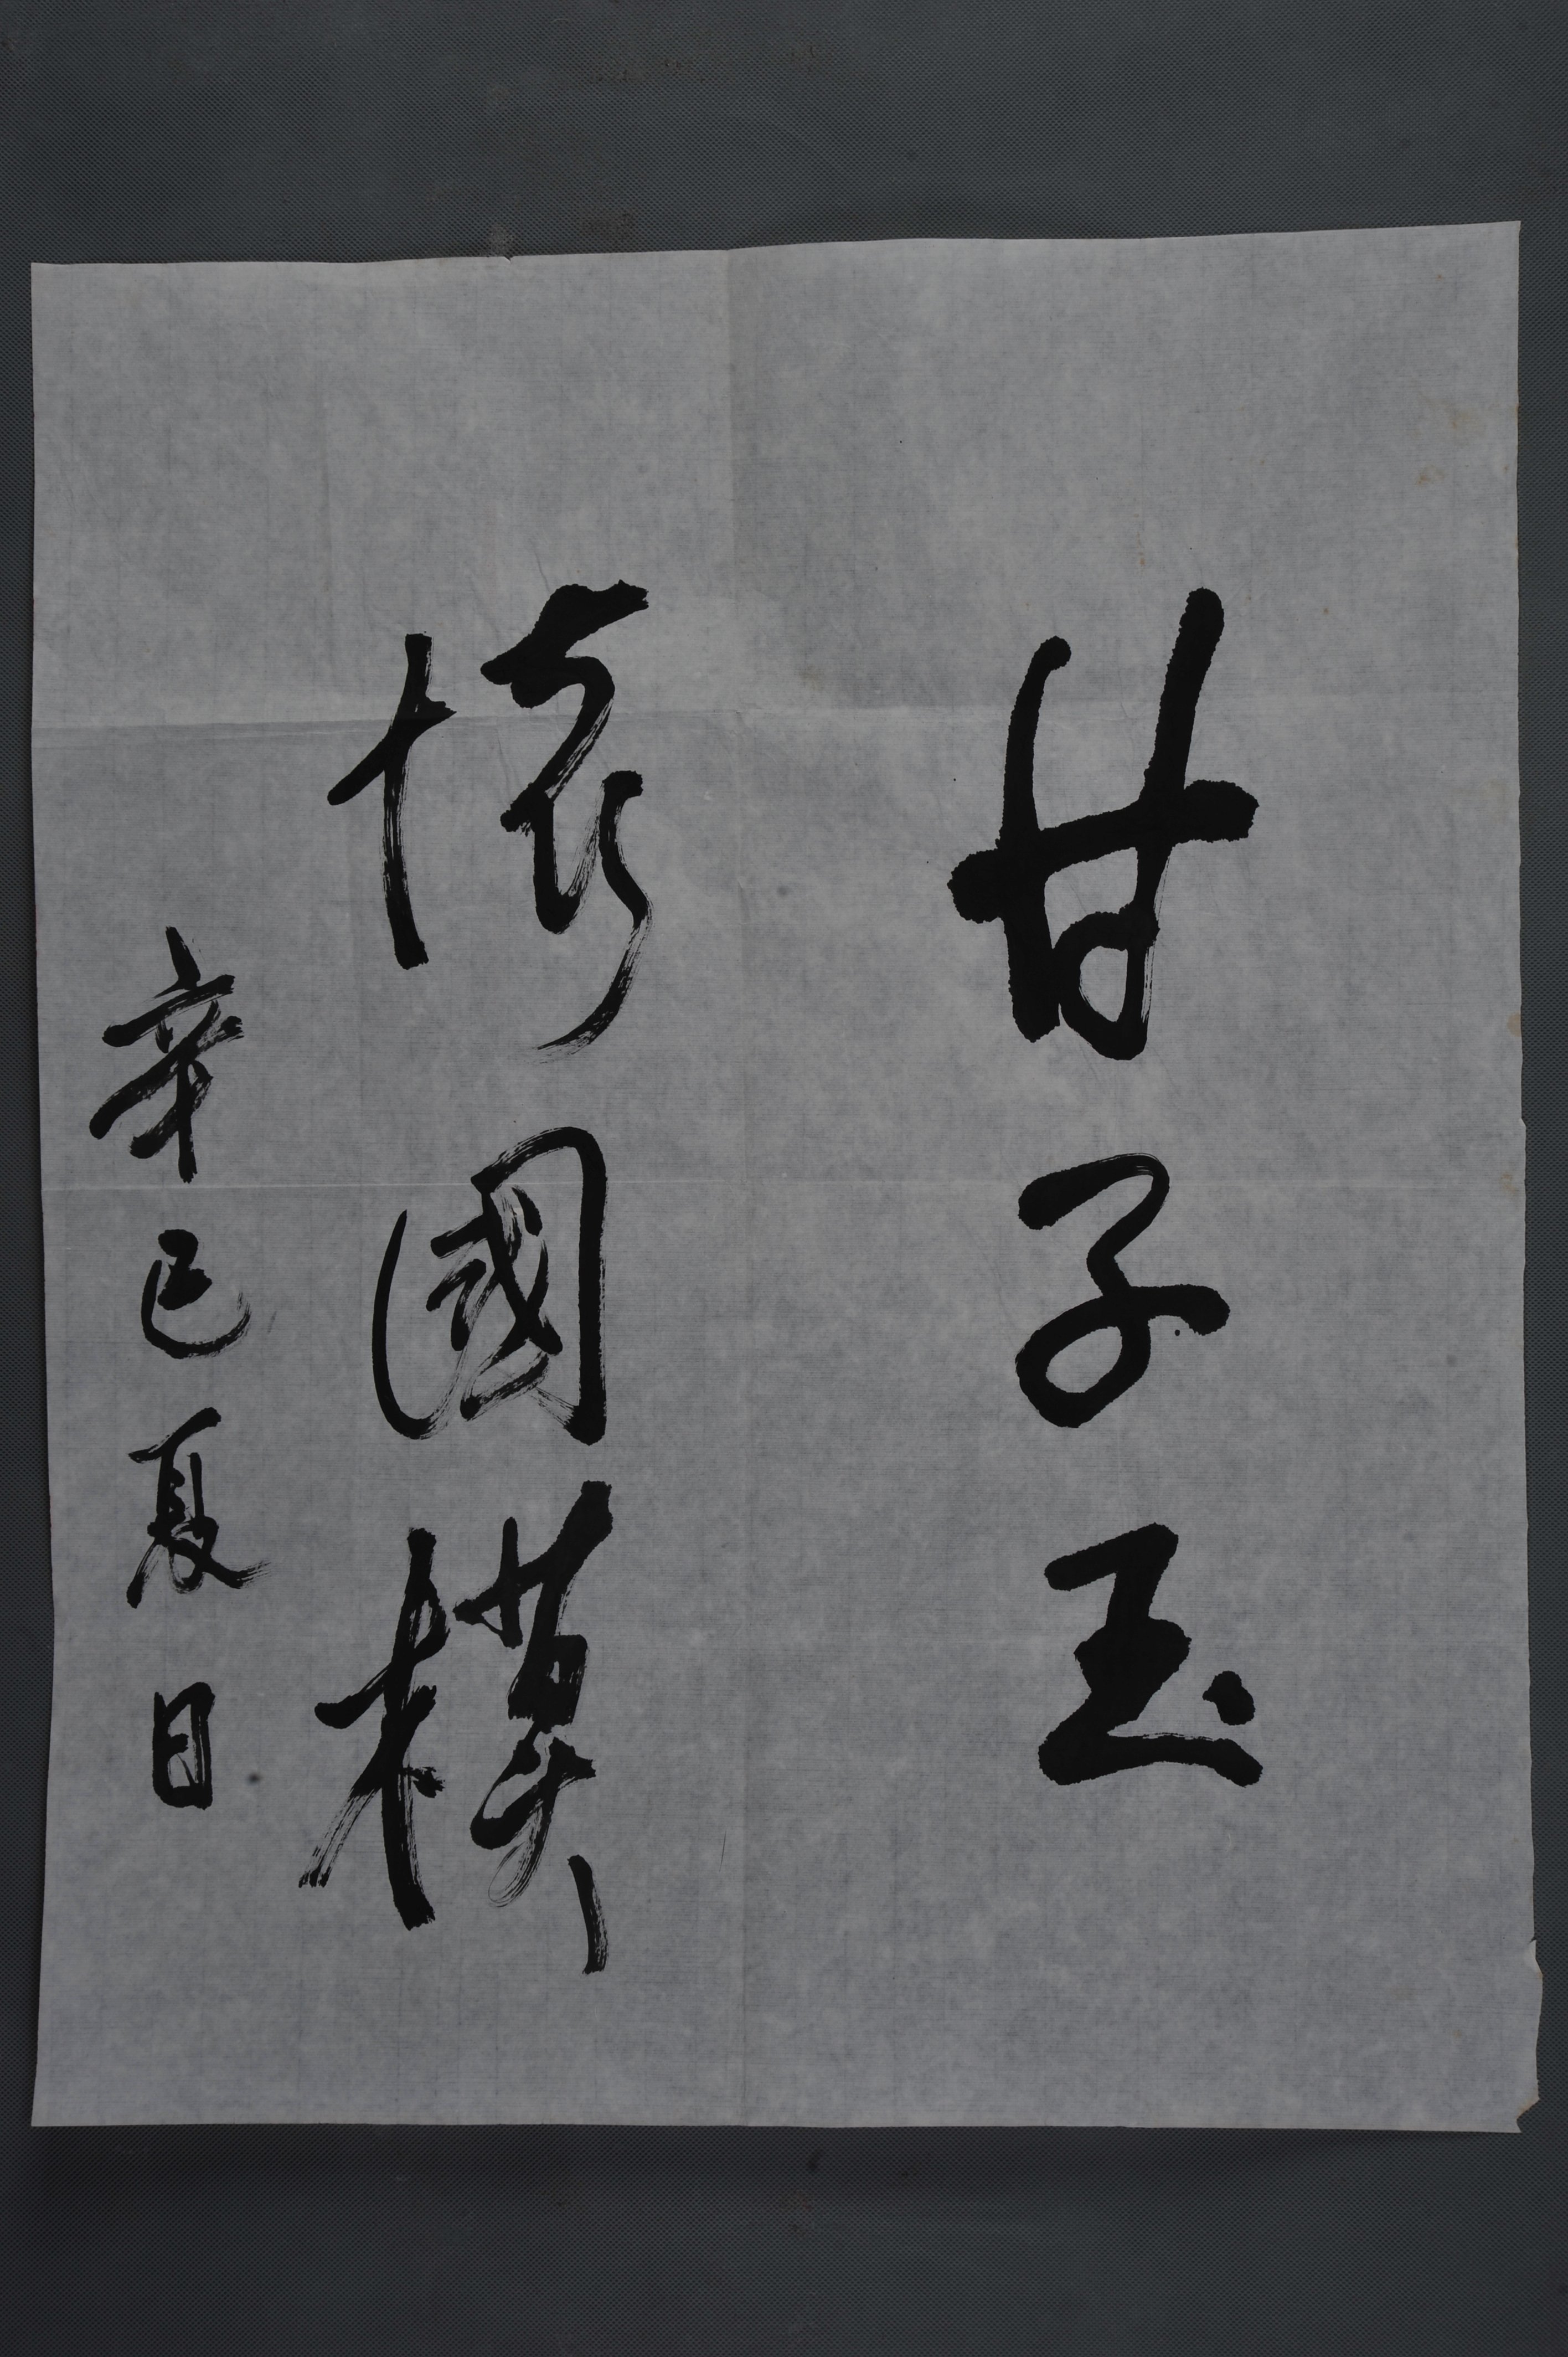 甘子玉
懷國模
辛巳夏日